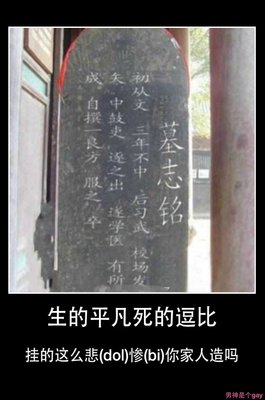 墓志铭
初从文 三年不中 后习武 校场发
矢 中鼓吏 逐之出 遂学医 有所
成 自撰一良方 服之 卒
生的平凡死的逗比
挂的这么悲(dol)惨(bi)你家人造吗
男神是个gay